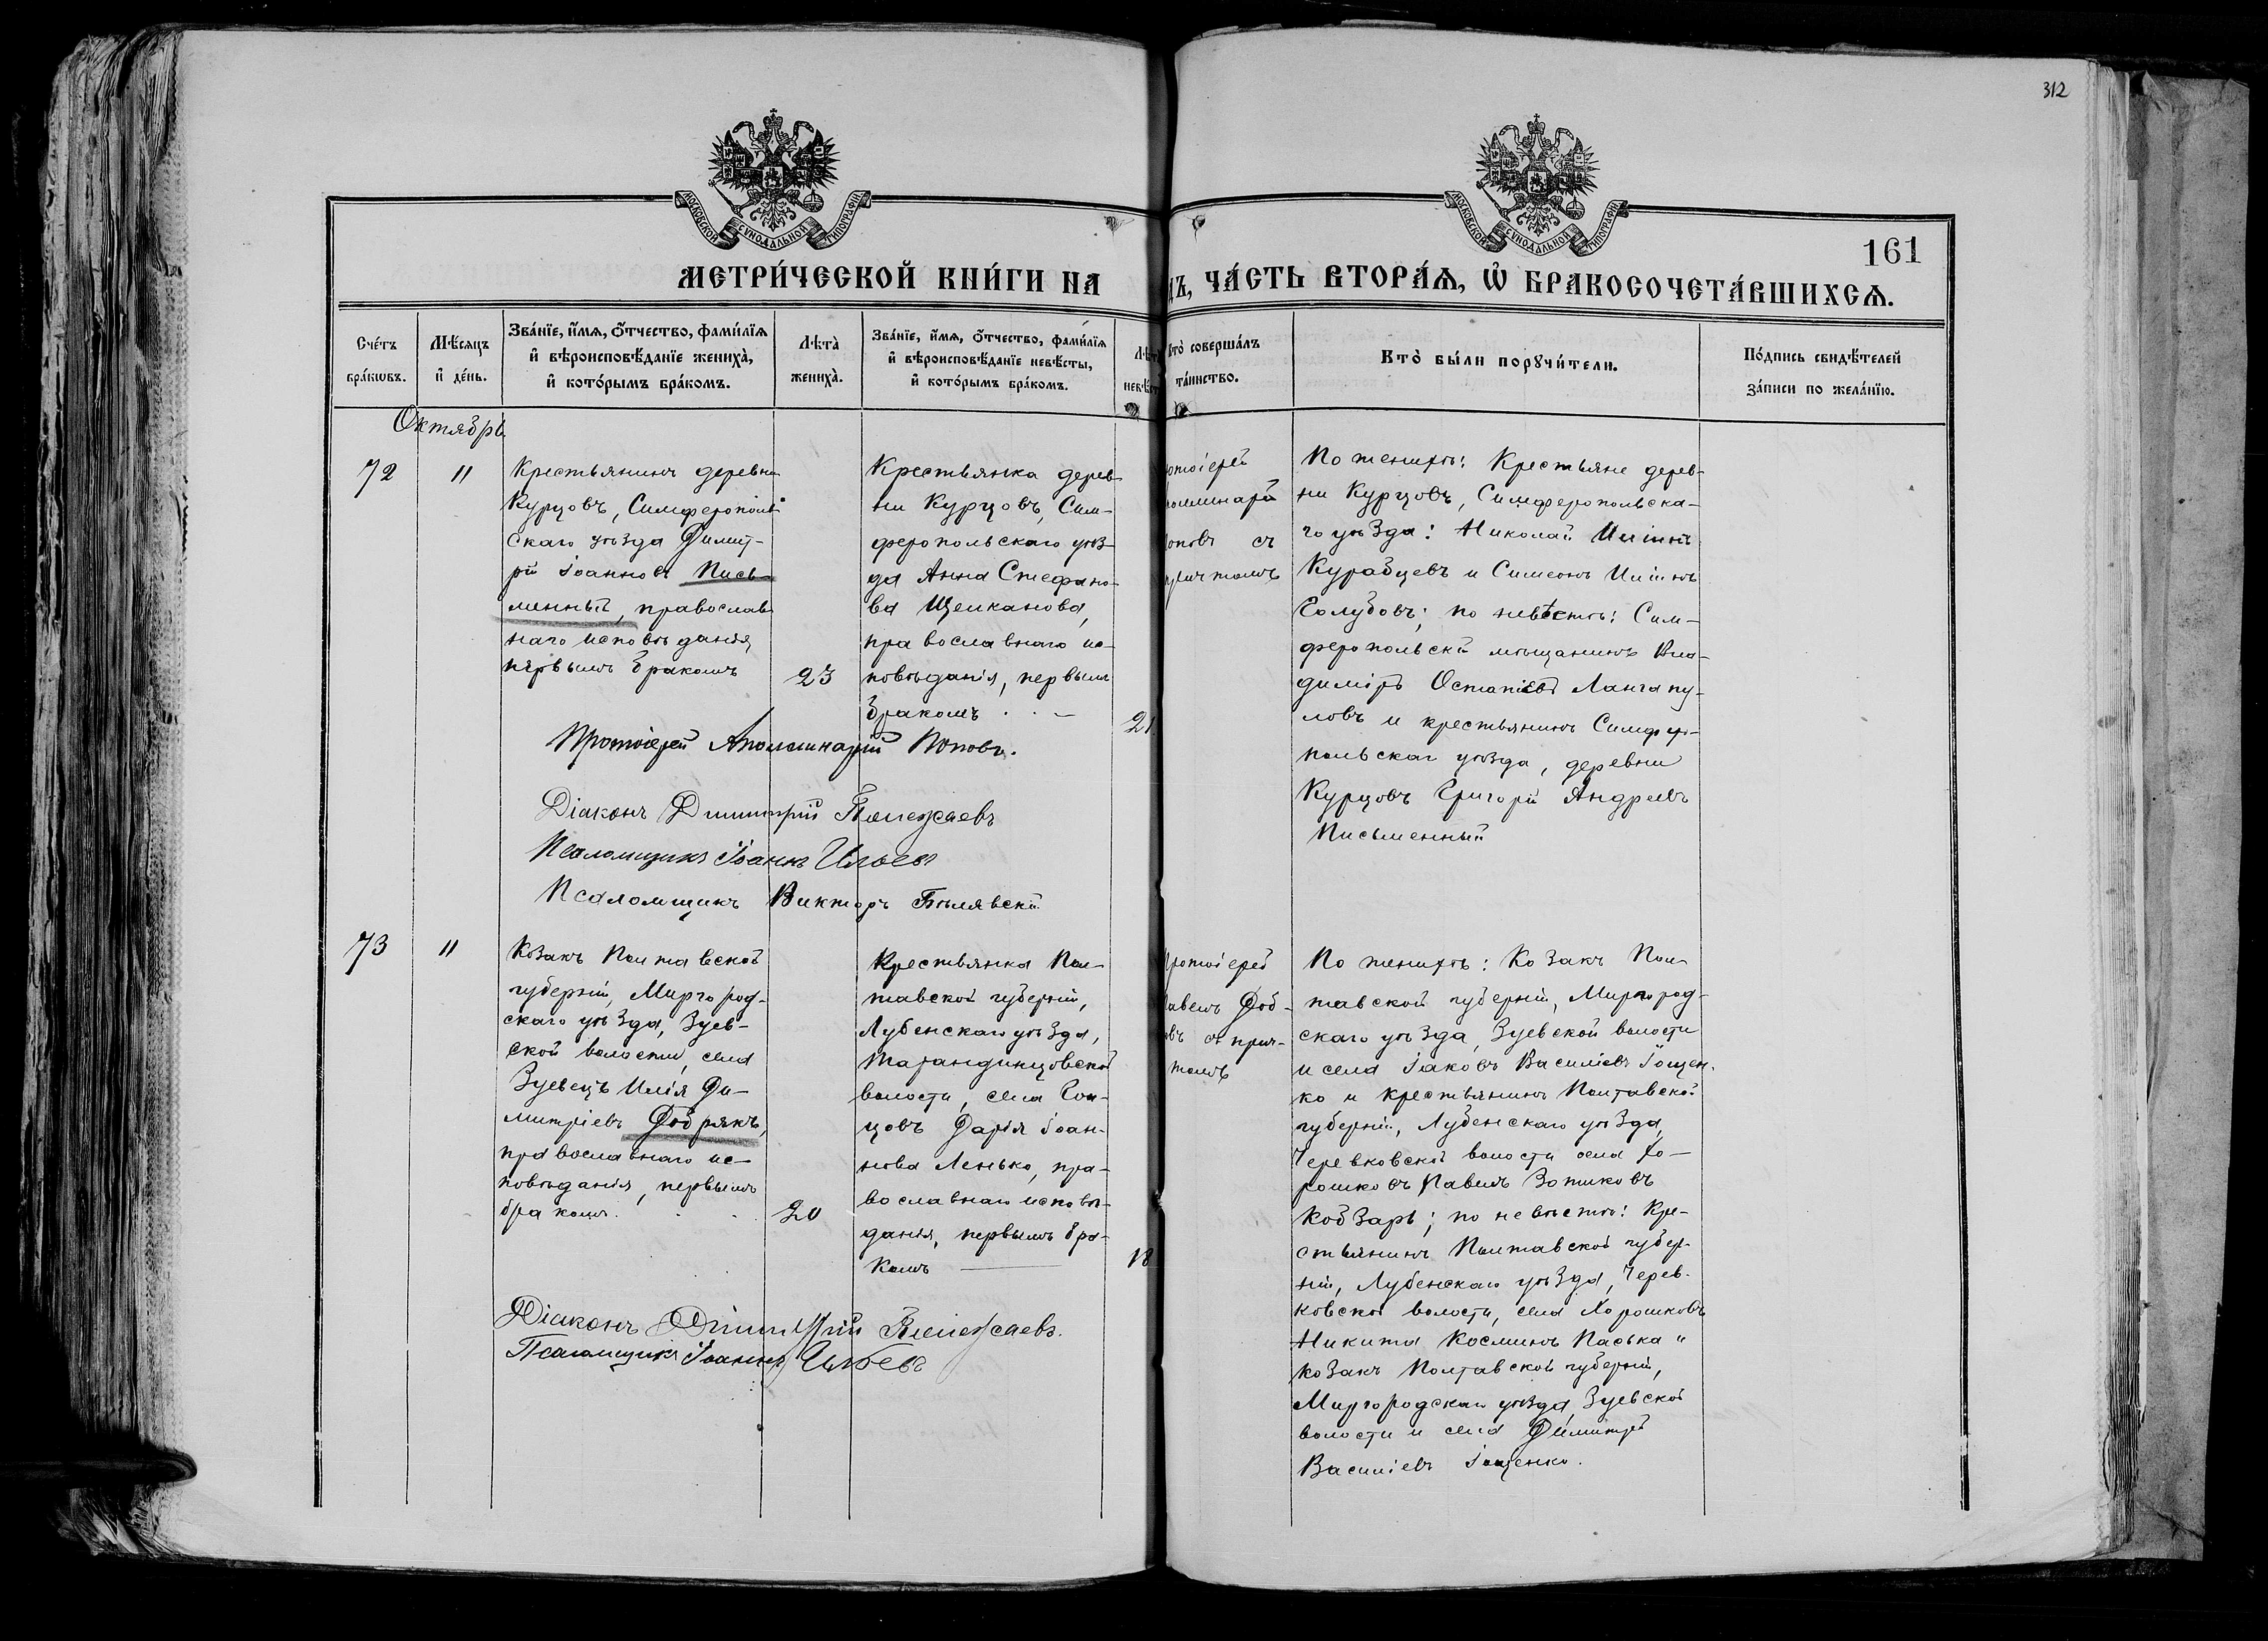 312
МОСКОВСКОЙ СѴНОДАЛЬНОЙ ТИПОГРАФІИ
МОСКОВСКОЙ СѴНОДАЛЬНОЙ ТИПОГРАФІИ
161
МЕТРИ́ЧЕСКОЙ КНИ́ГИ НА
ДЪ, ЧА́СТЬ ВТОРА́Ѧ, Ѽ БРАКОСОЧЕТА́ВШИХСѦ.
Сче́тъ
бра́кѡвъ.
Мѣ́сѧцъ
и҆ де́нь.
Зва́нїе, и҆́мѧ, ѻ҆́тчество, фами́лїѧ
и҆ вѣроисповѣ́данїе жениха̀,
и҆ кото́рымъ бра́комъ.
Лѣта̀
жениха̀.
Зва́нїе, и҆́мѧ, ѻ҆́тчество, фами́лїѧ
и҆ вѣроисповѣ́данїе невѣ́сты,
и҆ кото́рымъ бра́комъ.
Лѣта
невѣст
Кто̀ соверша́лъ
та́инство.
Кто̀ бы́ли порꙋчи́тели.
По́дпись свидѣ́телей
за́писи по жела́нїю.
Октябрь
72
11
Крестьянинъ деревни
Курцовъ, Симферополь-
скаго уѣзда Димит-
рій Іоанновъ Пись-
менный, православ
наго исповѣданія,
первымъ бракомъ
23
Крестьянка дерев-
ни Курцовъ, Сим-
феропольскаго уѣз-
да Анна Стефано-
ва Щелканова,
православнаго ис-
повѣданія, первымъ
бракомъ . . —
21
отоіерей
оллинарій
оповъ съ
ричтомъ
По женихѣ: Крестьяне дерев-
ни Курцовъ, Симферопольска-
го уѣзда: Николай Иліинъ
Курабцевъ и Симеонъ Иліинъ
Голубовъ; по невѣстѣ: Сим-
феропольскій мѣщанинъ Вла-
диміръ Остапіевъ Лангапу-
ловъ и крестьянинъ Симферо-
польскаг уѣзда, деревни
Курцовъ Григорій Андреевъ
Письменный
Протоіерей Аполлинарій Поповъ.
Діаконъ Димитрій Полежаевъ
Псаломщикъ Іоаннъ Ильевъ
Псаломщикъ Викторъ Бѣлявскій
73
11
Козакъ Полтавской
губерніи, Миргород-
скаго уѣзда, Зуев-
ской волости, села
Зуевецъ Илія Ди-
митріевъ Добрякъ,
православнаго ис-
повѣданія, первымъ
бракомъ. . .
20
Крестьянка Пол-
тавской губерніи,
Лубенскаго уѣзда,
Тарандинцовской
волости, села Сон-
цовъ Дарія Іоан-
нова Ленько, пра-
вославнаго исповѣ-
данія, первымъ бра-
комъ ——
18
ротоіерей
авелъ Доб-
въ съ прич-
томъ
По женихѣ: Козакъ Пол-
тавской губерніи, Миргород-
скаго уѣзда, Зуевской волости
и села Іаковъ Василіевъ Іощен-
ко и крестьянинъ Полтавской
губерніи, Лубенскаго уѣзда,
Черевковской волости села Хо-
рошковъ Павелъ Зотиковъ
Кобзарь; по невѣстѣ: Кре-
стьянинъ Полтавской губер-
ніи, Лубенскаго уѣзда, Черев-
ковской волости, села Хорошковъ
Никита Косминъ Паська и
козакъ Полтавской губерніи,
Миргородскаго уѣзда, Зуевской
волости и села Димитрій
Василіевъ Іощенко.
Діаконъ Димитрій Полежаевъ.
Псаломщикъ Іоаннъ Ильевъ